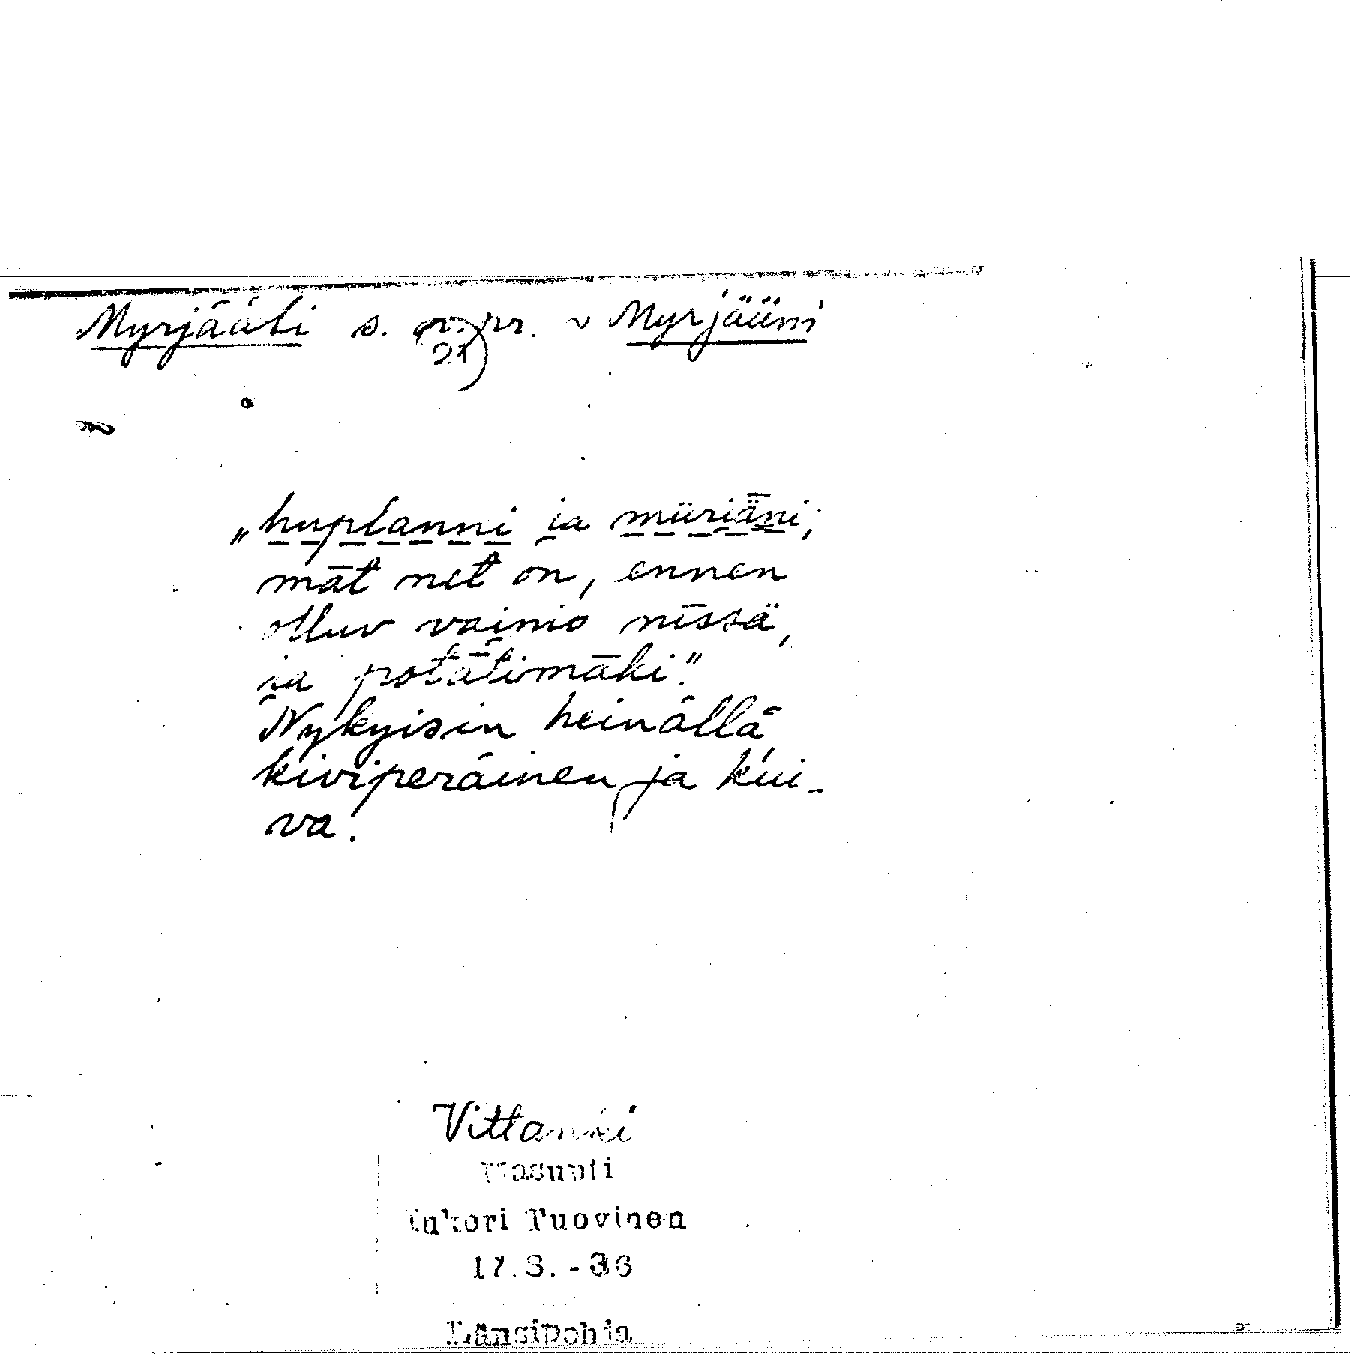 Myrjääli s. n. pr. ~ Myrjääni
21)
„huplanni ja müriäni;
mät net on, ennen
olluv vainio nīssä,
ja potātimäki."
Nykyisin heinällä,
kiviperäinen ja kui-
va.
Vittanki
Tuovinen
17.8.-36
Länsipohja